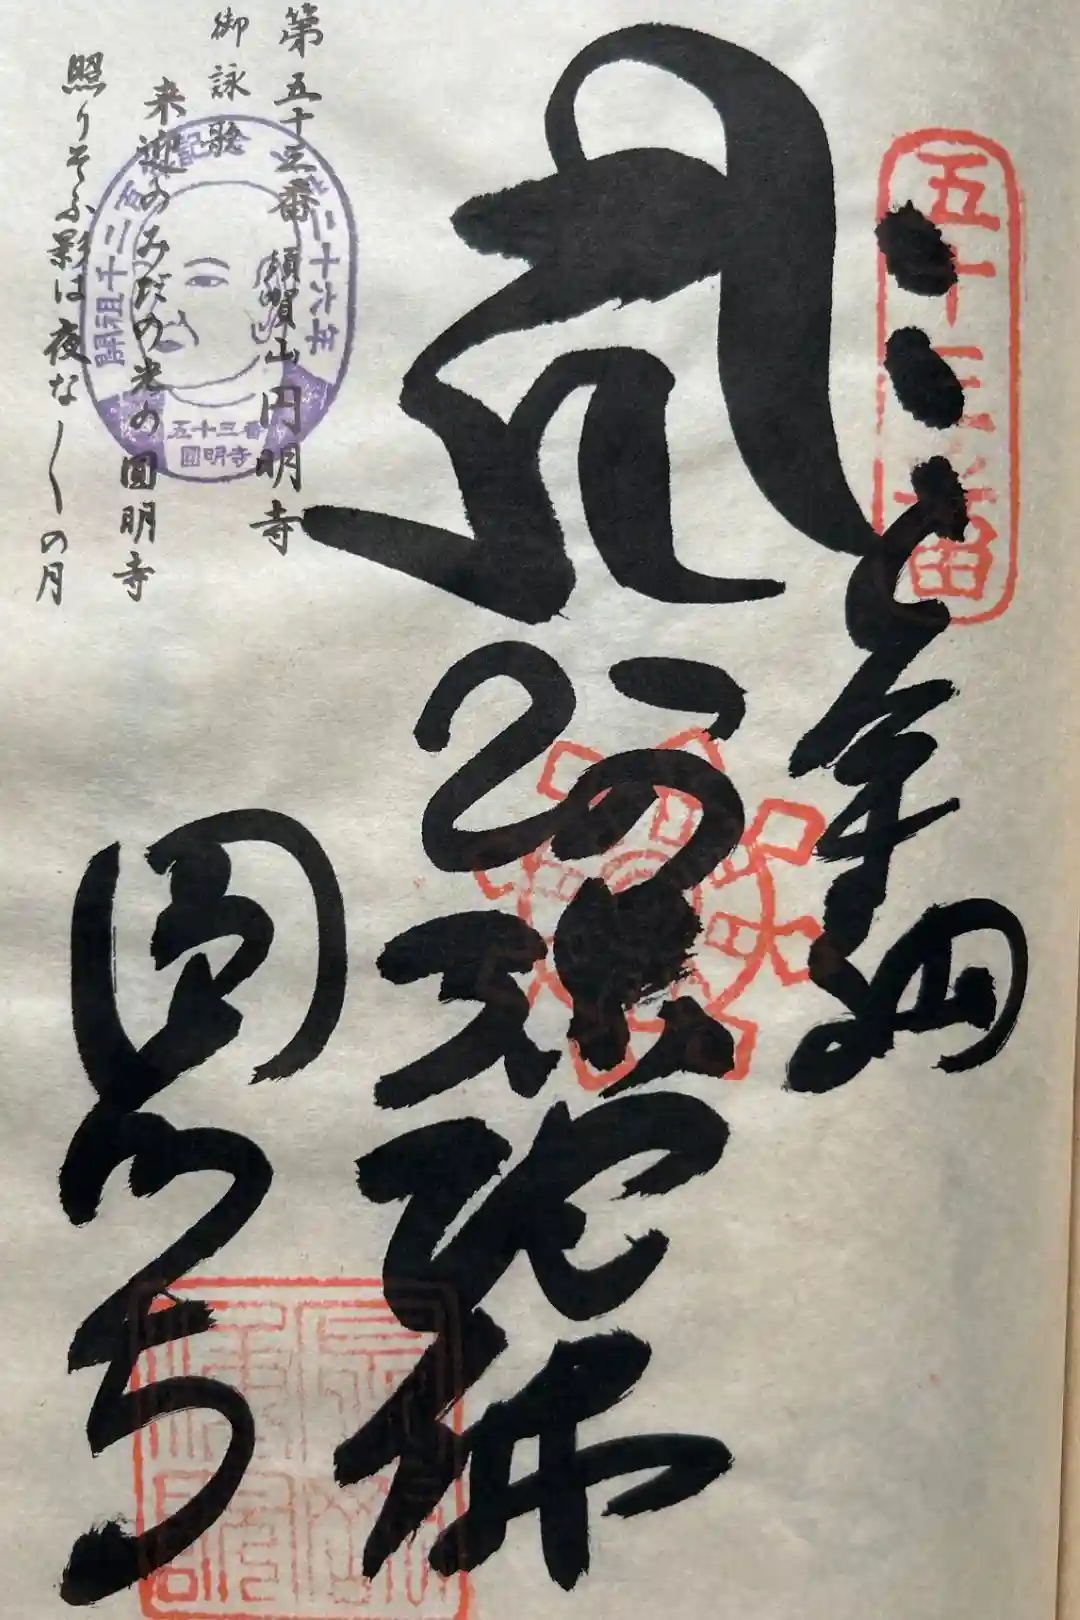 五十三番
奉納
阿弥陀佛
圓明寺
第五十三番 須賀山円明寺
御詠歌
来迎のみだの光の圓明寺
照りそふ影は夜な〱の月
五十三番
圓明寺